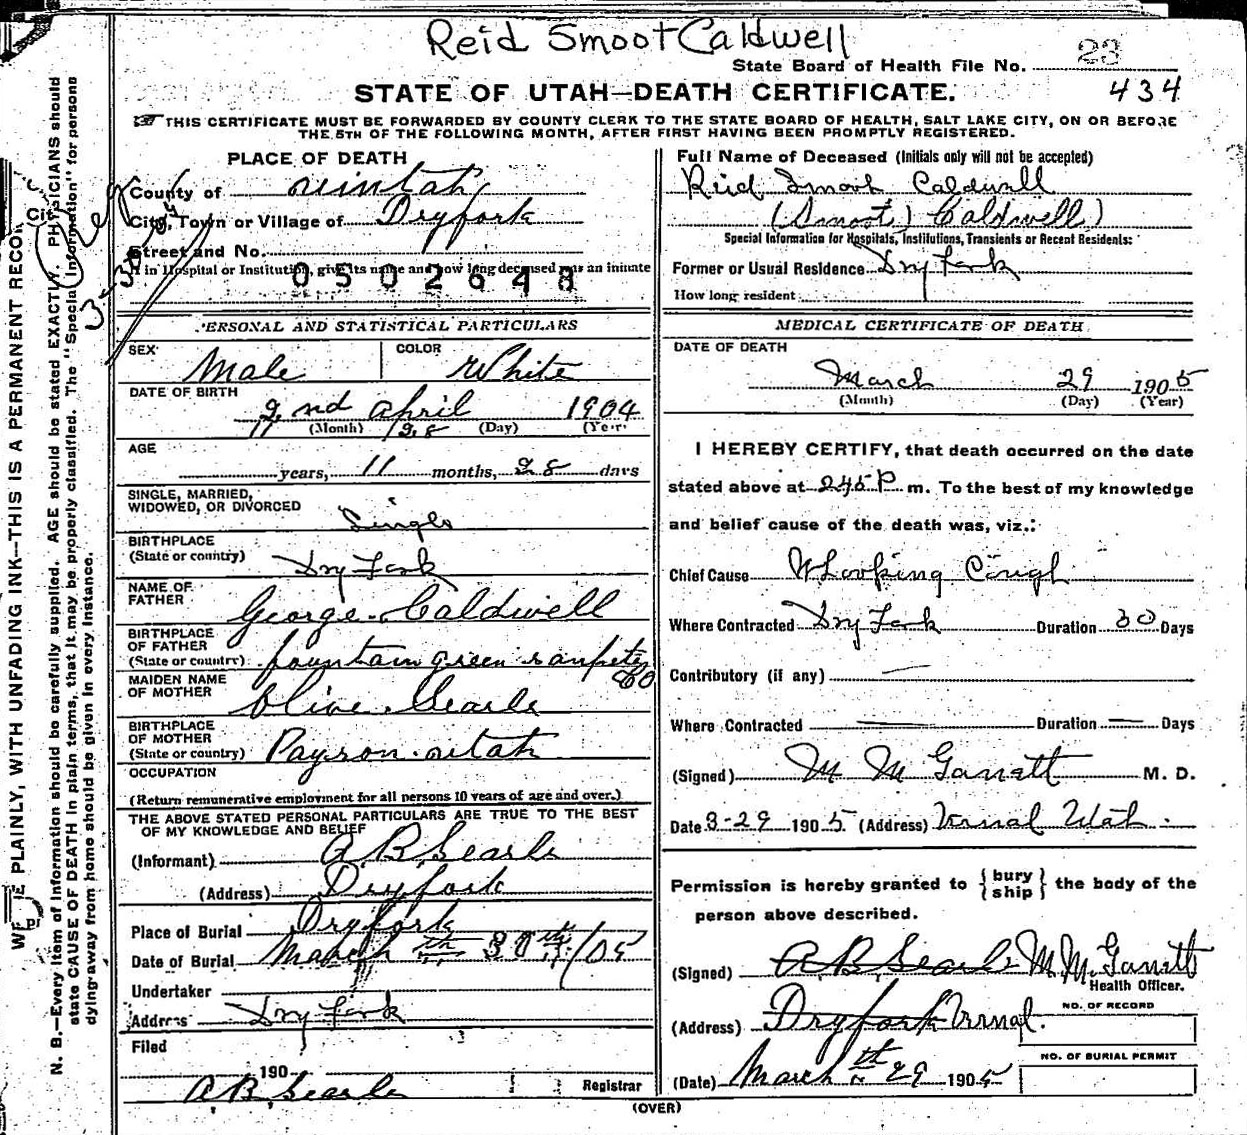 Reid Smoot Caldwell
State Board of Health File No. 23
434
STATE OF UTAH—DEATH CERTIFICATE.
THIS CERTIFICATE MUST BE FORWARDED BY COUNTY CLERK TO THE STATE BOARD OF HEALTH, SALT LAKE CITY, ON OR BEFORE
THE 5TH OF THE FOLLOWING MONTH, AFTER FIRST HAVING BEEN PROMPTLY REGISTERED.
PLACE OF DEATH
County of uintah
City, Town or Village of Dryfork
Street and No.
If in Hospital or Institution, give its name and how long deceased was an inmate
0502648
PERSONAL AND STATISTICAL PARTICULARS
SEX Male COLOR White
DATE OF BIRTH
2nd april 1904
(Month) (Day) (Year)
AGE
years, 11 months, 28 days
SINGLE, MARRIED,
WIDOWED, OR DIVORCED Single
BIRTHPLACE
(State or country) Dry Fork
NAME OF
FATHER George Caldwell
BIRTHPLACE
OF FATHER
(State or country) fountain green sanpete
Co
MAIDEN NAME
OF MOTHER Olive Searle
BIRTHPLACE
OF MOTHER
(State or country) Payson utah
OCCUPATION
(Return remunerative employment for all persons 10 years of age and over.)
THE ABOVE STATED PERSONAL PARTICULARS ARE TRUE TO THE BEST
OF MY KNOWLEDGE AND BELIEF
(Informant) A B Searle
(Address) Dryfork
Place of Burial Dryfork
Date of Burial March 30th /05
Undertaker
Address Dry Fork
Filed
190
A B Searle Registrar
(OVER)
Full Name of Deceased (Initials only will not be accepted)
Reid Smoot Caldwell
(Smoot) Caldwell)
Special Information for Hospitals, Institutions, Transients or Recent Residents:
Former or Usual Residence Dry Fork
How long resident
MEDICAL CERTIFICATE OF DEATH
DATE OF DEATH
March 29 1905
(Month) (Day) (Year)
I HEREBY CERTIFY, that death occurred on the date
stated above at 245 P m. To the best of my knowledge
and belief cause of the death was, viz.:
Chief Cause Whooping Cough
Where Contracted Dry Fork Duration 30 Days
Contributory (if any) —
Where Contracted — Duration — Days
(Signed) M M Garrett M. D.
Date 3-29 1905 (Address) Vernal Utah.
Permission is hereby granted to {bury
ship} the body of the
person above described.
(Signed) A B Searle M. M. Garrett
Health Officer.
(Address) Dryfork Vernal.
NO. OF RECORD
NO. OF BURIAL PERMIT
(Date) March th 29 1905
WRITE PLAINLY, WITH UNFADING INK—THIS IS A PERMANENT RECORD
N. B.—Every item of information should be carefully supplied. AGE should be stated EXACTLY. PHYSICIANS should
state CAUSE OF DEATH in plain terms, that it may be properly classified. The "Special Information" for persons
dying away from home should be given in every instance.